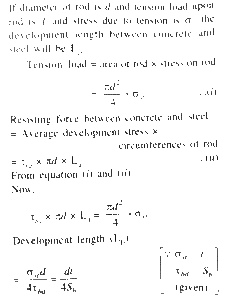 If diameter of rod is d and tension load upon
rod is t and stress due to tension is σ the
development length between concrete and
steel will be L
Tension load = area of rod × stress on rod
= πd²/4 · σst ...(i)
Resisting force between concrete and steel
= Average development stress ×
circumferences of rod
= τbd × πd × Ld ...(ii)
From equation (i) and (ii)
Now,
τbd × πd × Ld = πd²/4 · σst
Development length (Ld)
= σst d / 4τbd = dt / 4Sb [∵ σst = t
τbd = Sb
(given)]